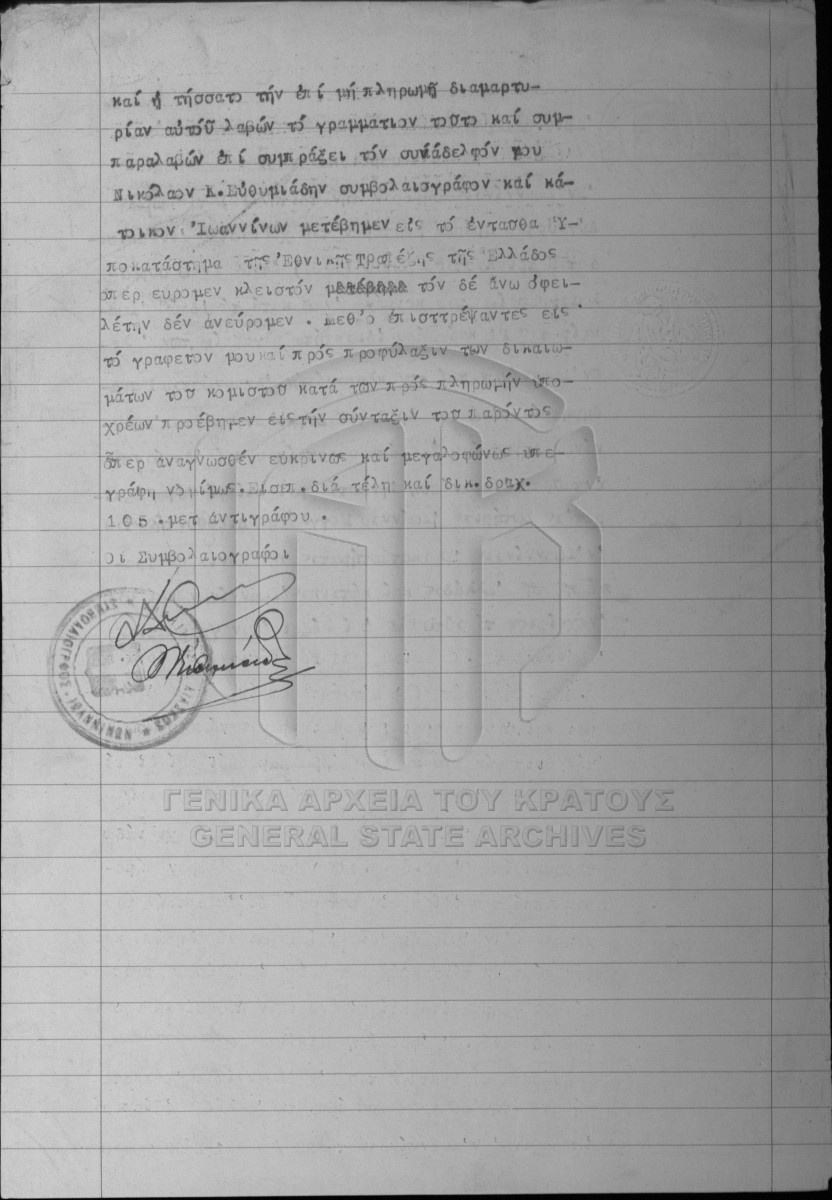 καί ᾐ τήσσατο τήν ἐπί μή πληρωμῇ διαμαρτυ-
ρίαν αὐτοῦ λαβών τό γραμμάτιον τοῦτο καί συμ-
παραλαβών ἐπί συμπράξει τόν συνάδελφόν μου
Νικόλαον Κ.Εὐθυμιάδην συμβολαιογράφον καί κά-
τοικον Ἰωαννίνων μετέβημεν εἰς τό ἐνταῦθα Ὑ-
ποκατάστημα τῆς Ἐθνικῆς Τραπέζης τῆς Ἑλλάδος
ὅπερ εὕρομεν κλειστόν τόν δέ ἄνω ὀφει-
λέτην δέν ἀνεύρομεν . Μεθ'ὅ ἐπισττρέψαντες εἰς
τό γραφεῖον μου καί πρός προφύλαξιν των δικαιω-
μάτων τοῦ κομιστοῦ κατά των πρός πληρωμήν ὑπο-
χρέων προέβημεν εἰς τήν σύνταξιν τοῦ παρόντος
ὅπερ ἀναγνωσθέν εὐκρινῶς καί μεγαλοφώνως ὑπε-
γράφη νομίμως.Εἰσεπ.διά τέλη καί δικ.δραχ.
105.μετ ἀντιγράφου .
Οἱ Συμβολαιογράφοι
ΣΥΜΒΟΛΑΙΟΓΡΑΦΟΣ ΙΩΑΝΝΙΝΩΝ
ΓΕΝΙΚΑ ΑΡΧΕΙΑ ΤΟΥ ΚΡΑΤΟΥΣ
GENERAL STATE ARCHIVES